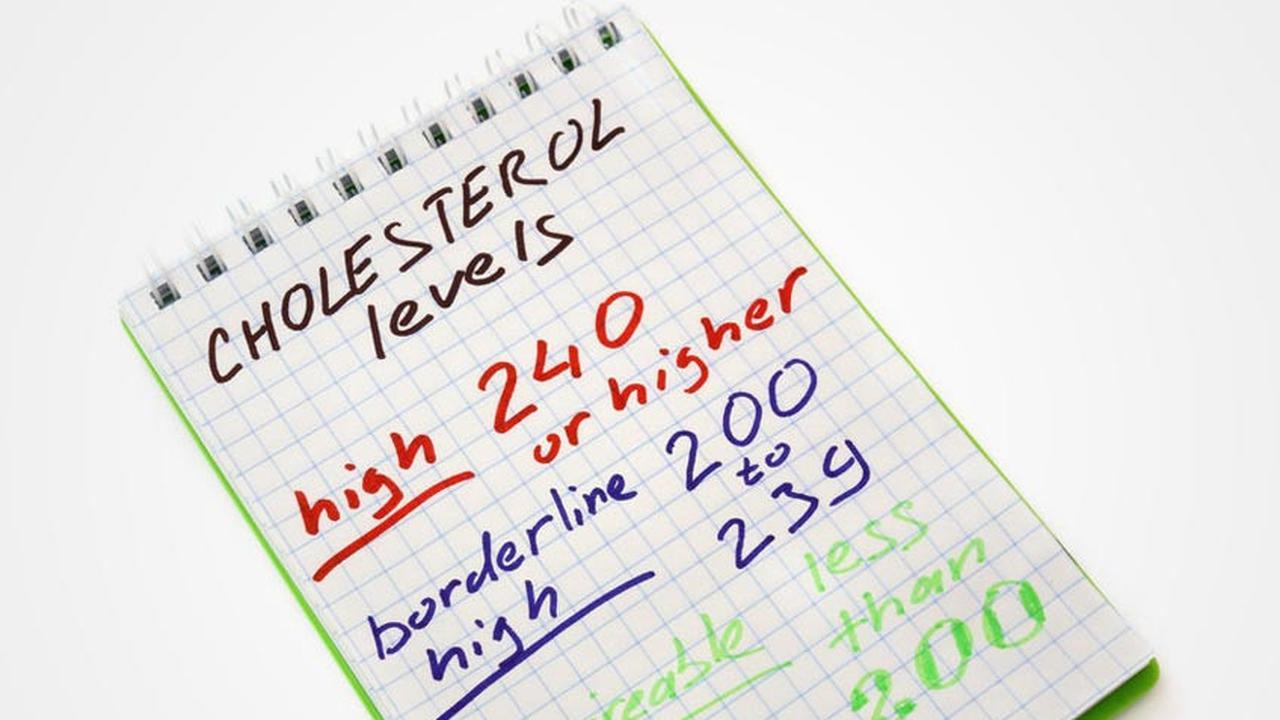 CHOLESTEROL
levels
high 240
or higher
borderline 200
high to
239
less
than
200